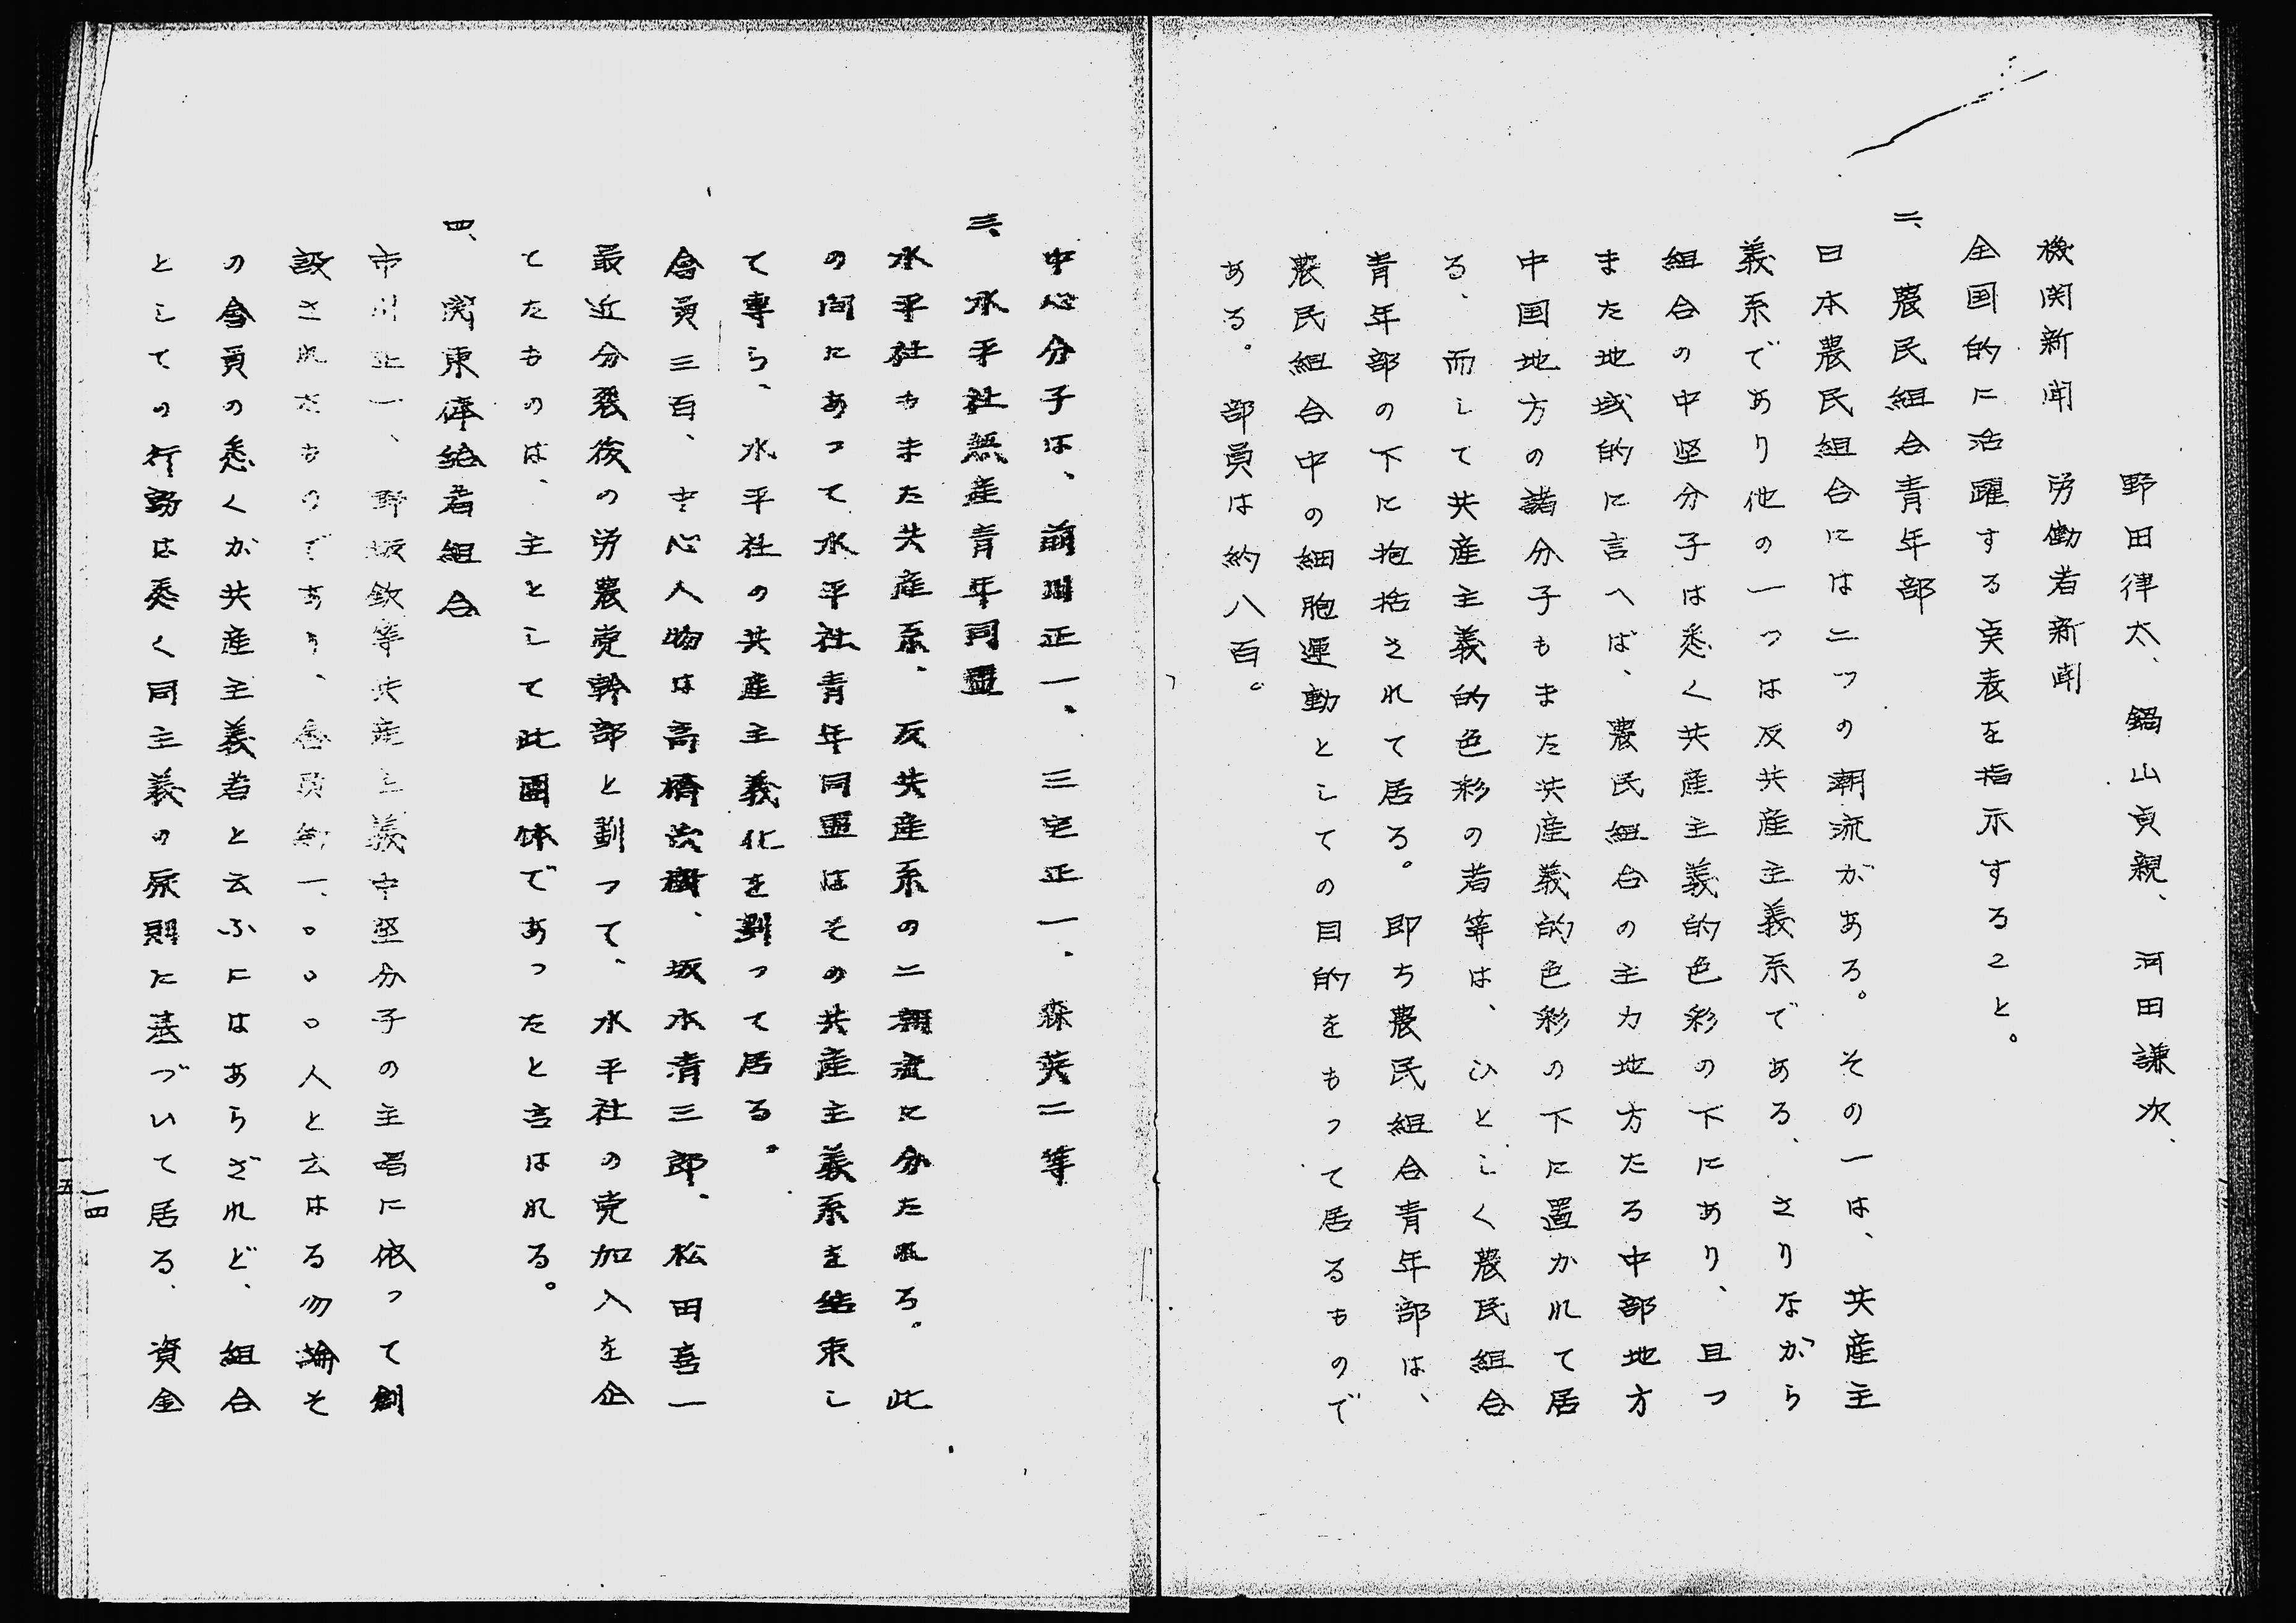 野田律太、鍋山貞親、河田謙次、
機関新聞　労働者新聞
全国的に活躍する実表を指示すること。
二、農民組合青年部
日本農民組合には二つの潮流がある。その一は、共産主
義系であり他の一つは反共産主義系である、さりながら
組合の中堅分子は悉く共産主義的色彩の下にあり、且つ
また地域的に言へば、農民組合の主力地方たる中部地方
中国地方の諸分子もまた共産義的色彩の下に置かれて居
る、而して共産主義的色彩の者等は、ひとしく農民組合
青年部の下に抱括されて居る。即ち農民組合青年部は、
農民組合中の細胞運動としての目的をもって居るもので
ある。部員は約八百。
中心分子は、前川正一、三宅正一、森英二等
三、水平社無産青年同盟
水平社もまた共産系、反共産系の二潮流に分たれる。此
の間にあって水平社青年同盟はその共産主義系を結束し
て専ら、水平社の共産主義化を劃って居る。
會員三百、中心人物は高橋貞樹、坂本清三郎、松田喜一
最近分裂後の労農党幹部と劃って、水平社の党加入を企
てたものは、主として此団体であったと言はれる。
四、関東俸給者組合
市川正一、野坂鉄等共産主義中堅分子の主唱に依って創
設されたものであり、會員約一、〇〇〇人と云はる勿論そ
の會員の悉くが共産主義者と云ふにはあらざれど、組合
としての行動は悉く同主義の原則に基づいて居る、資金
一四
一五